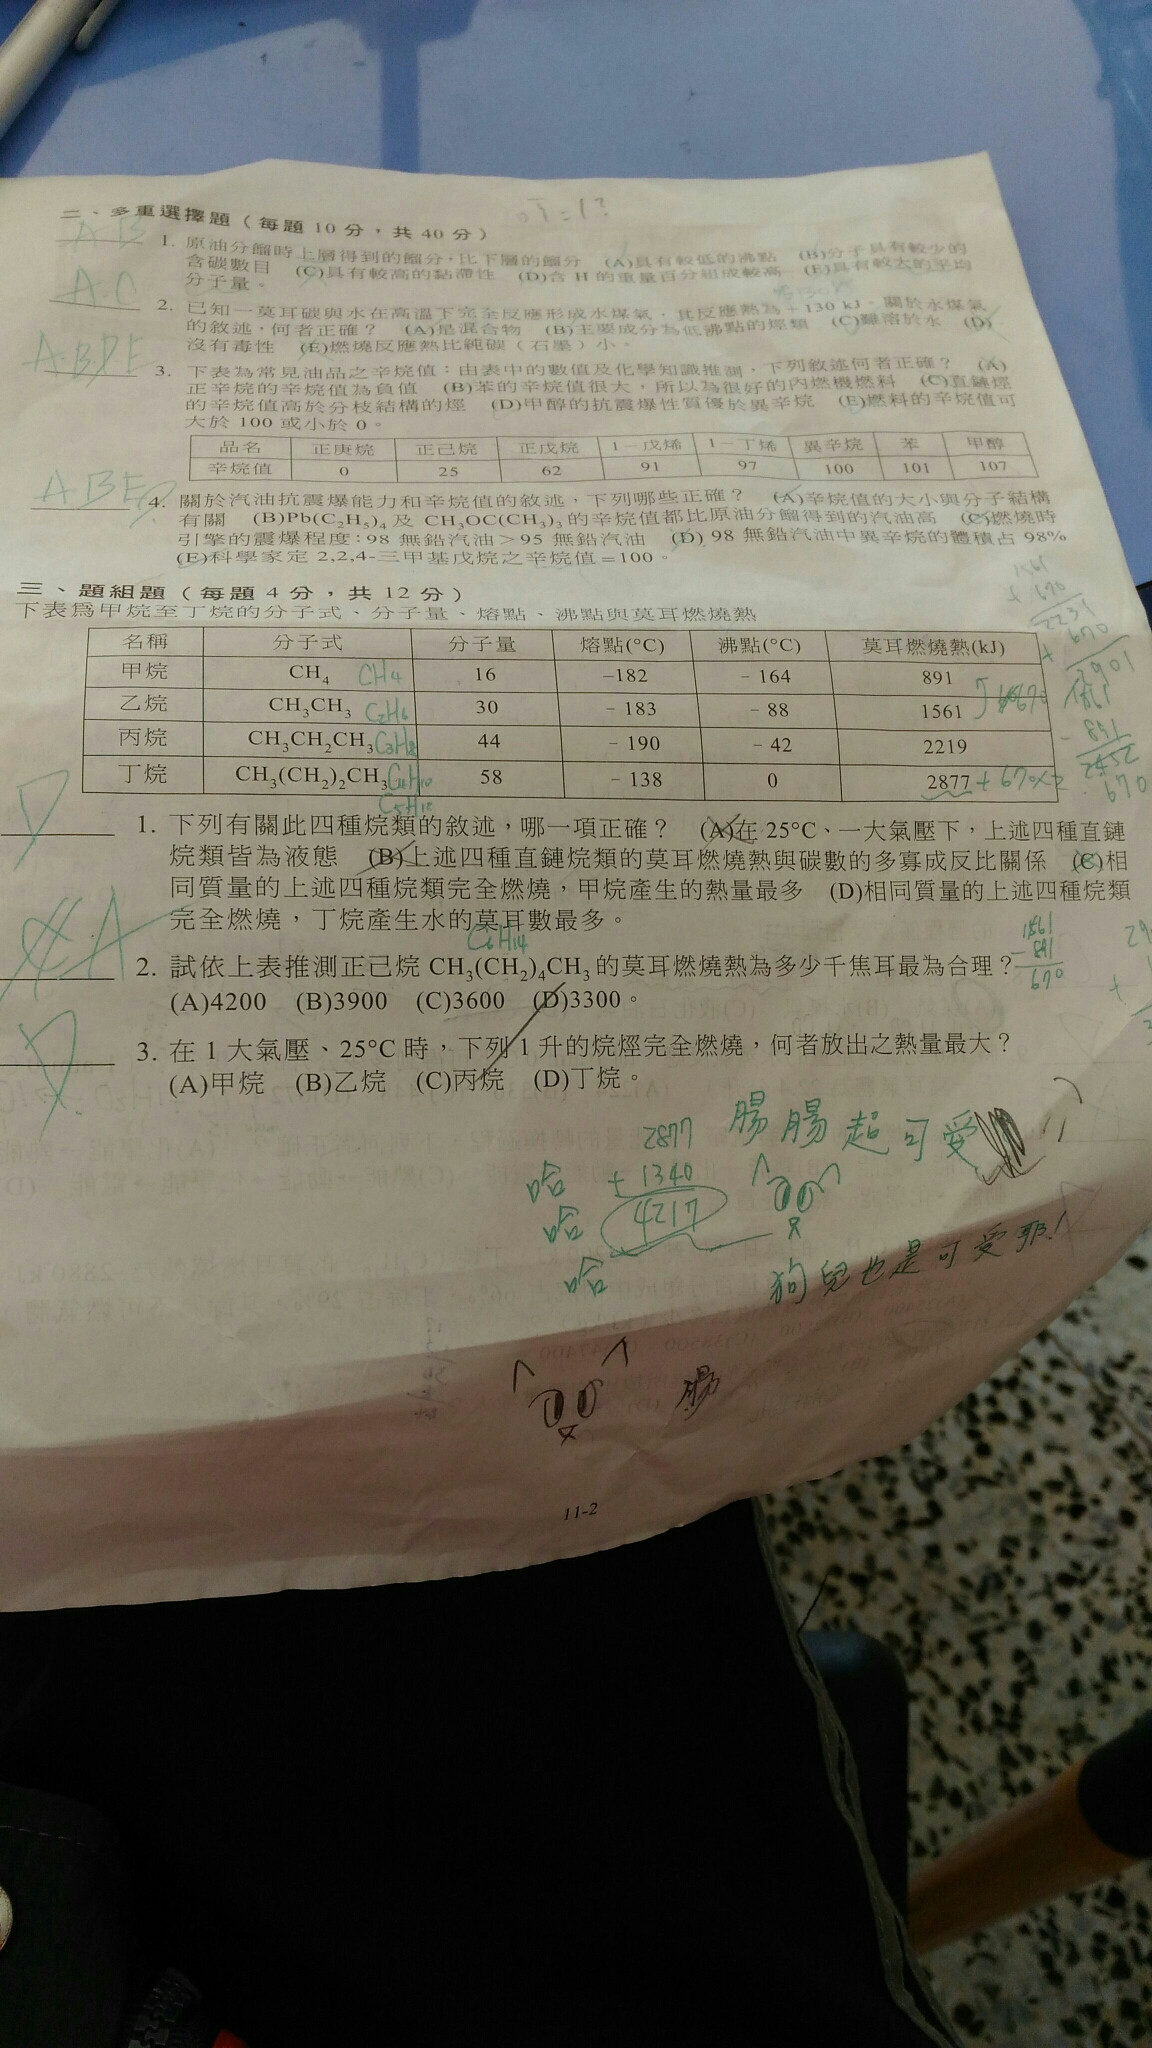 二、多重選擇題（每題 10 分，共 40 分）
AB
1. 原油分餾時上層得到的餾分，比下層的餾分 (A)具有較低的沸點 (B)分子具有較少的
含碳數目 (C)具有較高的黏滯性 (D)含 H 的重量百分組成較高 (E)具有較大的平均
分子量。
A.C
2. 已知一莫耳碳與水在高溫下完全反應形成水煤氣，其反應熱為＋130 kJ。關於水煤氣
的敘述，何者正確？ (A)是混合物 (B)主要成分為低沸點的烴類 (C)難溶於水 (D)
沒有毒性 (E)燃燒反應熱比純碳（石墨）小。
A.B.D.E
3. 下表為常見油品之辛烷值：由表中的數值及化學知識推測，下列敘述何者正確？ (A)
正辛烷的辛烷值為負值 (B)苯的辛烷值很大，所以為很好的內燃機燃料 (C)直鏈烴
的辛烷值高於分枝結構的烴 (D)甲醇的抗震爆性質優於異辛烷 (E)燃料的辛烷值可
大於 100 或小於 0。
品名 正庚烷 正己烷 正戊烷 1－戊烯 1－丁烯 異辛烷 苯 甲醇
辛烷值 0 25 62 91 97 100 101 107
ABE
4. 關於汽油抗震爆能力和辛烷值的敘述，下列哪些正確？ (A)辛烷值的大小與分子結構
有關 (B)Pb(C₂H₅)₄ 及 CH₃OC(CH₃)₃ 的辛烷值都比原油分餾得到的汽油高 (C)燃燒時
引擎的震爆程度：98 無鉛汽油＞95 無鉛汽油 (D) 98 無鉛汽油中異辛烷的體積占 98%
(E)科學家定 2,2,4-三甲基戊烷之辛烷值＝100。
三、題組題（每題 4 分，共 12 分）
下表為甲烷至丁烷的分子式、分子量、熔點、沸點與莫耳燃燒熱
名稱 分子式 分子量 熔點(°C) 沸點(°C) 莫耳燃燒熱(kJ)
甲烷 CH₄ CH4 16 –182 – 164 891
乙烷 CH₃CH₃ C2H6 30 – 183 – 88 1561
丙烷 CH₃CH₂CH₃ C3H8 44 – 190 – 42 2219
丁烷 CH₃(CH₂)₂CH₃ C4H10 58 – 138 0 2877 + 670×2
C5H12
1561
+ 670
2231
670
+
2901
1561
- 891
670
D
1. 下列有關此四種烷類的敘述，哪一項正確？ (A)在 25°C、一大氣壓下，上述四種直鏈
烷類皆為液態 (B)上述四種直鏈烷類的莫耳燃燒熱與碳數的多寡成反比關係 (C)相
同質量的上述四種烷類完全燃燒，甲烷產生的熱量最多 (D)相同質量的上述四種烷類
完全燃燒，丁烷產生水的莫耳數最多。
C6H14
A
2. 試依上表推測正己烷 CH₃(CH₂)₄CH₃ 的莫耳燃燒熱為多少千焦耳最為合理？
(A)4200 (B)3900 (C)3600 (D)3300。
1561
- 891
670
D
3. 在 1 大氣壓、25°C 時，下列 1 升的烷烴完全燃燒，何者放出之熱量最大？
(A)甲烷 (B)乙烷 (C)丙烷 (D)丁烷。
2877
+ 1340
4217
腸腸超可愛
哈
哈
哈
狗兒也是可愛耶！
腸
11-2